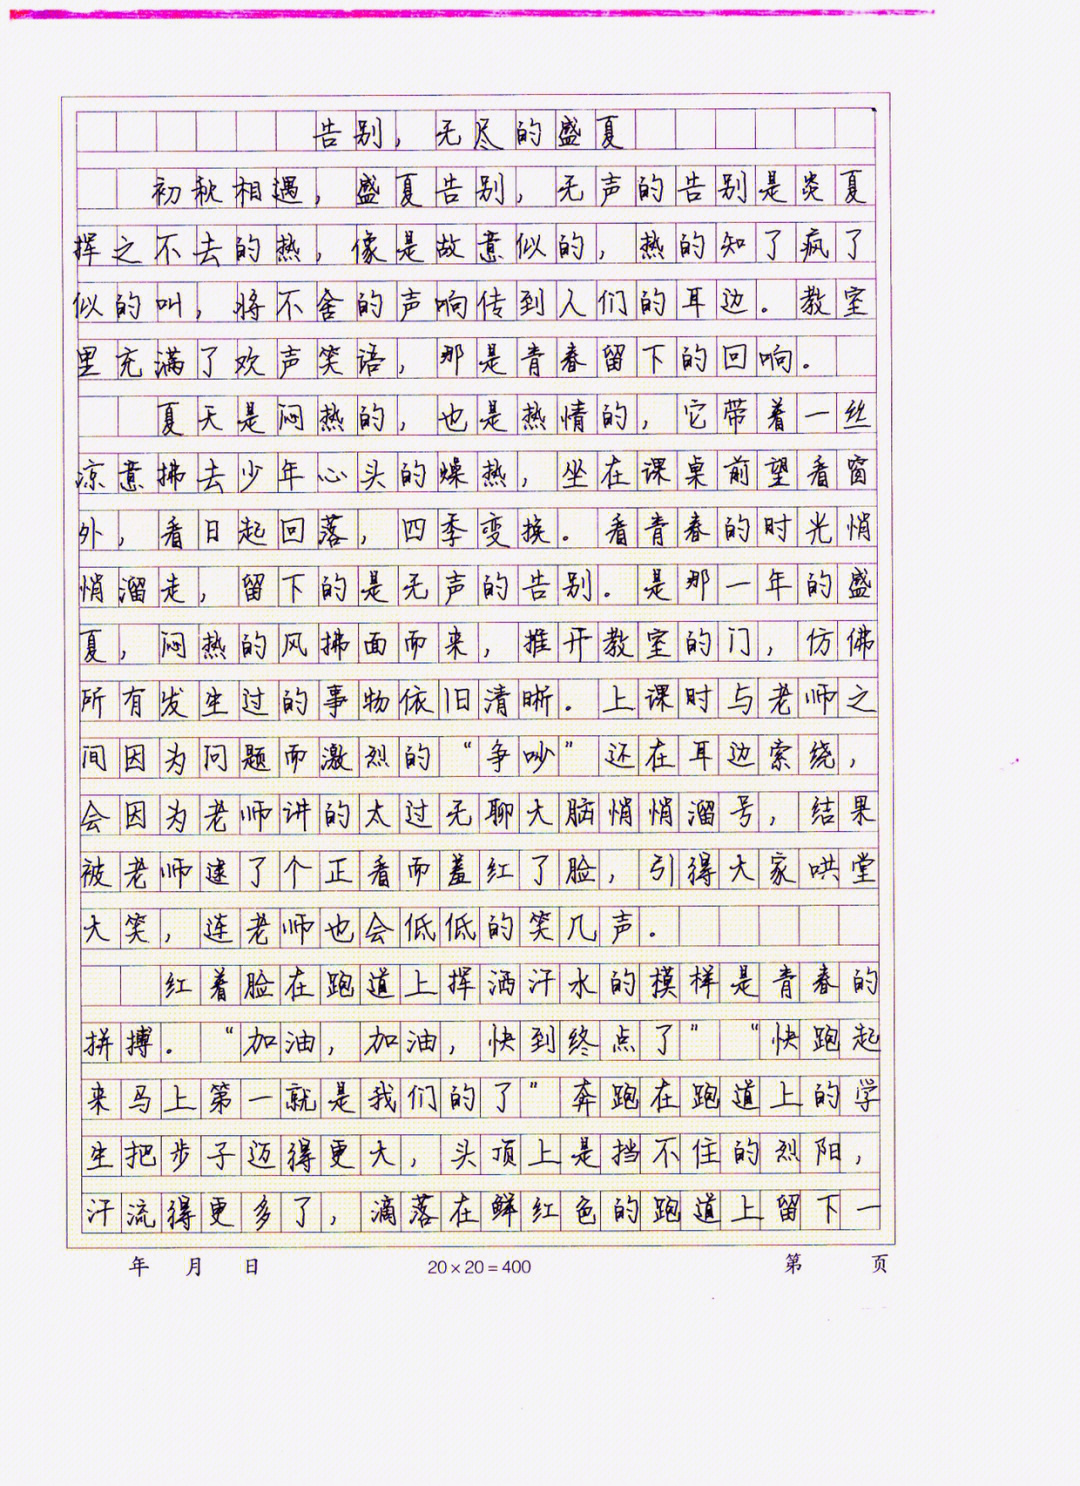 告别，无尽的盛夏
初秋相遇，盛夏告别，无声的告别是炎夏
挥之不去的热，像是故意似的，热的知了疯了
似的叫，将不舍的声响传到人们的耳边。教室
里充满了欢声笑语，那是青春留下的回响。
夏天是闷热的，也是热情的，它带着一丝
凉意拂去少年心头的燥热，坐在课桌前望看窗
外，看日起回落，四季变换。看青春的时光悄
悄溜走，留下的是无声的告别。是那一年的盛
夏，闷热的风拂面而来，推开教室的门，仿佛
所有发生过的事物依旧清晰。上课时与老师之
间因为问题而激烈的“争吵”还在耳边索绕，
会因为老师讲的太过无聊大脑悄悄溜号，结果
被老师逮了个正看而羞红了脸，引得大家哄堂
大笑，连老师也会低低的笑几声。
红着脸在跑道上挥洒汗水的模样是青春的
拼搏。“加油，加油，快到终点了”“快跑起
来马上第一就是我们的了”奔跑在跑道上的学
生把步子迈得更大，头顶上是挡不住的烈阳，
汗流得更多了，滴落在鲜红色的跑道上留下一
年 月 日 20×20=400 第 页